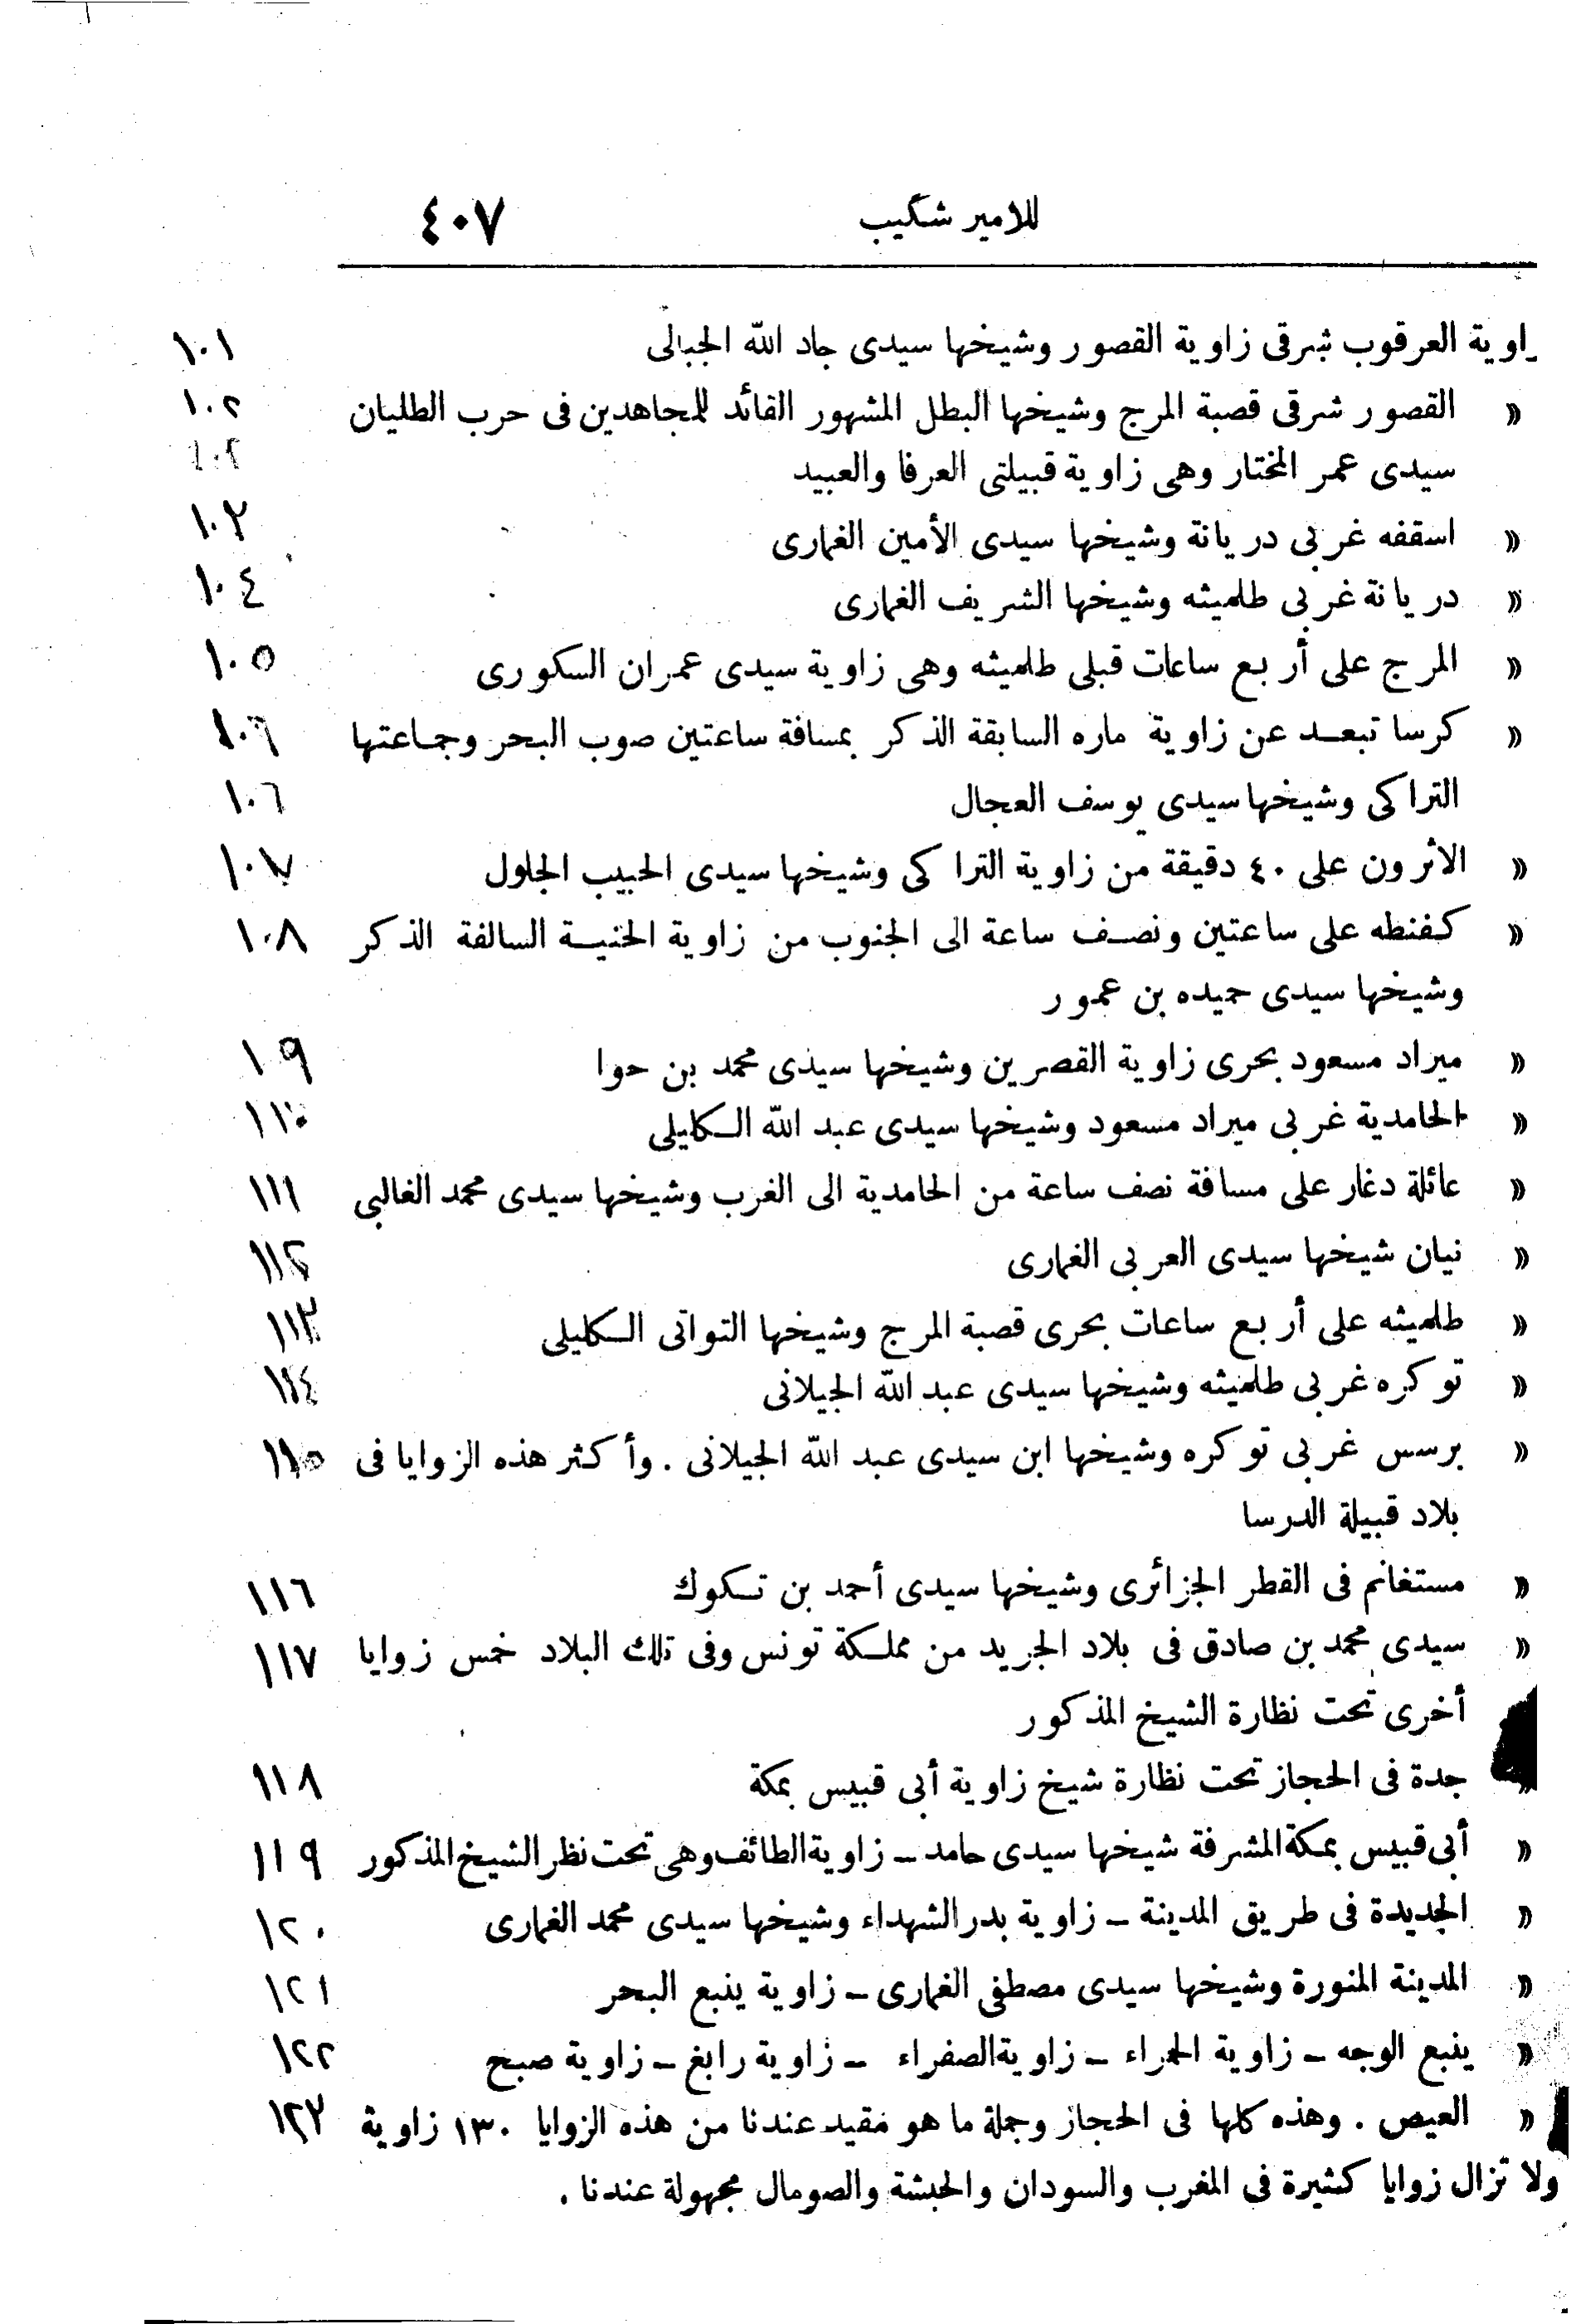 للامير شكيب ٤٠٧
زاوية العرقوب شرقى زاوية القصور وشيخها سيدى جاد الله الجبالى ١٠١
» القصور شرقى قصبة المرج وشيخها البطل المشهور القائد للمجاهدين فى حرب الطليان ١٠٢
سيدى عمر المختار وهى زاوية قبيلتى العرفا والعبيد ١٠٢
» اسقفه غربى دريانة وشيخها سيدى الأمين الغمارى ١٠٣
» دريانة غربى طلميثه وشيخها الشريف الغمارى ١٠٤
» المرج على أربع ساعات قبلى طلميثه وهى زاوية سيدى عمران السكورى ١٠٥
» كرسا تبعد عن زاوية ماره السابقة الذكر بمسافة ساعتين صوب البحر وجماعتها ١٠٦
التراكى وشيخها سيدى يوسف العجال ١٠٦
» الاثرون على ٤٠ دقيقة من زاوية التراكى وشيخها سيدى الحبيب الجلول ١٠٧
» كفنطه على ساعتين ونصف ساعة الى الجنوب من زاوية الحنية السالفة الذكر ١٠٨
وشيخها سيدى حميده بن عمور
» ميراد مسعود بحرى زاوية القصرين وشيخها سيدى محمد بن حوا ١٠٩
» الحامدية غربى ميراد مسعود وشيخها سيدى عبد الله الكليلى ١١٠
» عائلة دغار على مسافة نصف ساعة من الحامدية الى الغرب وشيخها سيدى محمد الغالبي ١١١
» نيان شيخها سيدى العربى الغمارى ١١٢
» طلميثه على أربع ساعات بحرى قصبة المرج وشيخها التواتى الكليلى ١١٣
» توكره غربى طلميثه وشيخها سيدى عبد الله الجيلانى ١١٤
» برسس غربى توكره وشيخها ابن سيدى عبد الله الجيلانى . وأكثر هذه الزوايا فى ١١٥
بلاد قبيلة الدرسا
» مستغانم فى القطر الجزائرى وشيخها سيدى أحمد بن تكوك ١١٦
» سيدى محمد بن صادق فى بلاد الجريد من مملكة تونس وفى تلك البلاد خمس زوايا ١١٧
أخرى تحت نظارة الشيخ المذكور
» جدة فى الحجاز تحت نظارة شيخ زاوية أبى قبيس بمكة ١١٨
» أبى قبيس بمكة المشرفة شيخها سيدى حامد – زاوية الطائف وهى تحت نظر الشيخ المذكور ١١٩
» الجديدة فى طريق المدينة – زاوية بدر الشهداء وشيخها سيدى محمد الغمارى ١٢٠
» المدينة المنورة وشيخها سيدى مصطفى الغمارى – زاوية ينبع البحر ١٢١
» ينبع الوجه – زاوية الحمراء – زاوية الصفراء – زاوية رابغ – زاوية صبح ١٢٢
» العيص . وهذه كلها فى الحجاز وجملة ما هو مقيد عندنا من هذه الزوايا ١٣٠ زاوية ١٢٣
ولا تزال زوايا كثيرة فى المغرب والسودان والحبشة والصومال مجهولة عندنا .